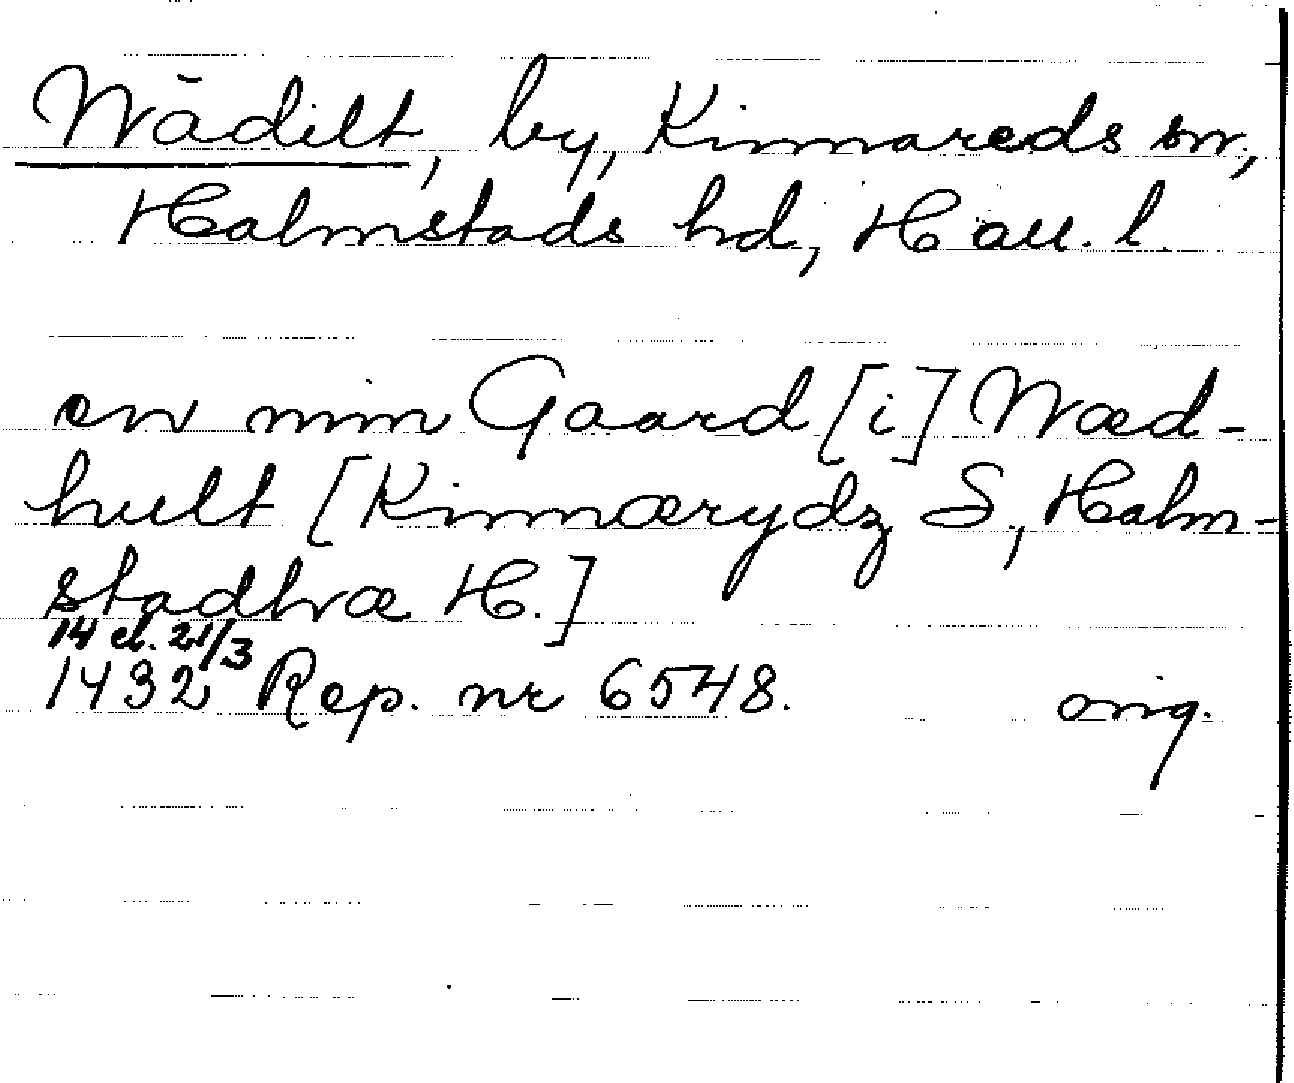 Wädilt, by, Kinnareds sn,
Halmstads hd, Hall. l.
en min Gaard [i] Wæd-
hult [Kinnærydz S, Halm-
stadhræ H.]
14 el. 21/3
1432 Rep. nr 6548. orig.